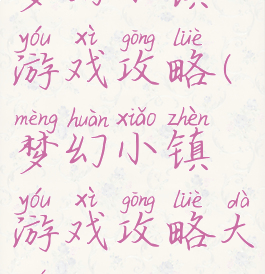 yóu xì gōng lüè
游戏攻略(
mèng huàn xiǎo zhèn
梦幻小镇
yóu xì gōng lüè dà
游戏攻略大